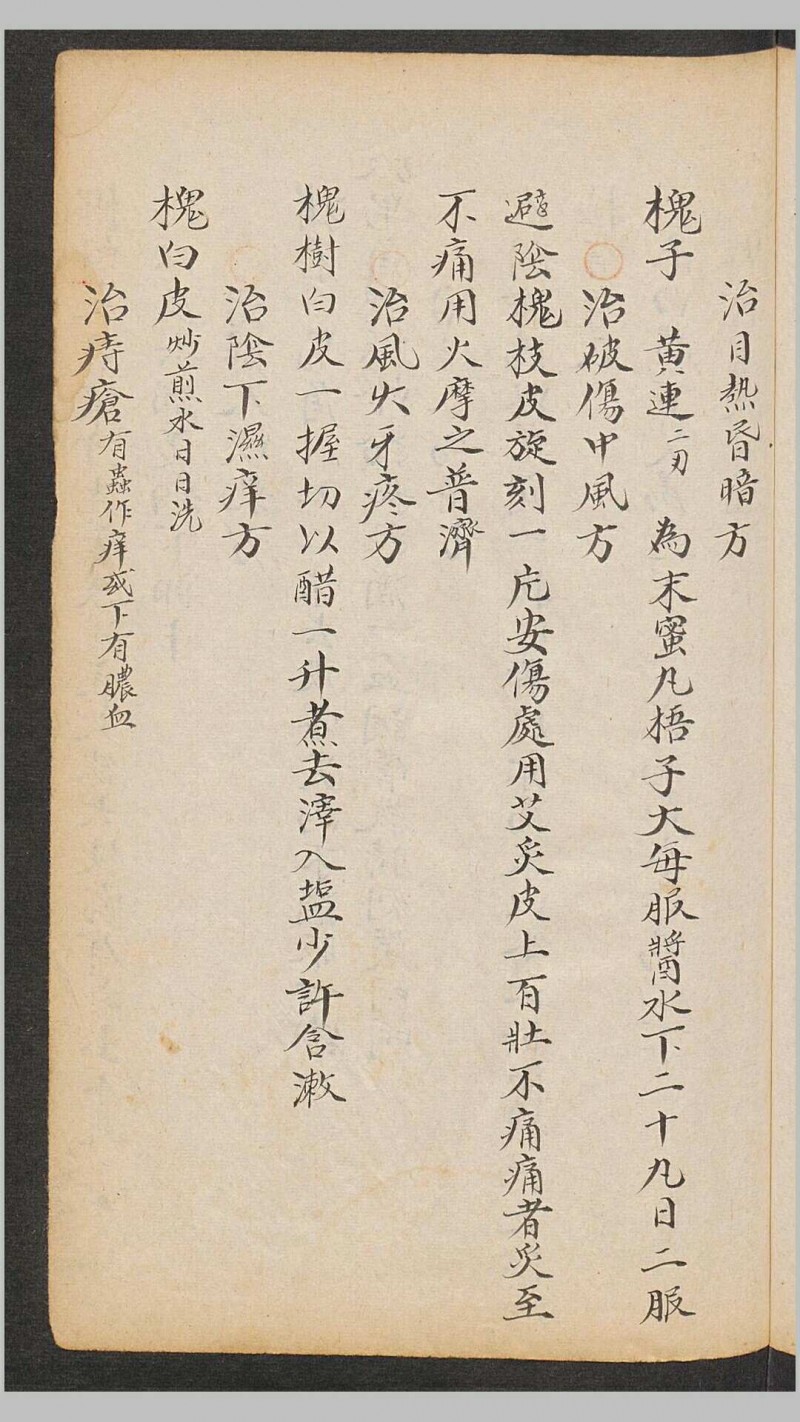 治目熱昏暗方
槐子 黃連二刃 為末蜜凡梧子大每服醬水下二十九日二服
治破傷中風方
避陰槐枝皮旋刻一片安傷處用艾炙皮上百壯不痛痛者炙至
不痛用火摩之普濟
治風火牙疼方
槐樹白皮一握切以醋一升煮去滓入塩少許含漱
治陰下濕痒方
槐白皮炒煎水日日洗
治痔瘡有蟲作痒或下有膿血